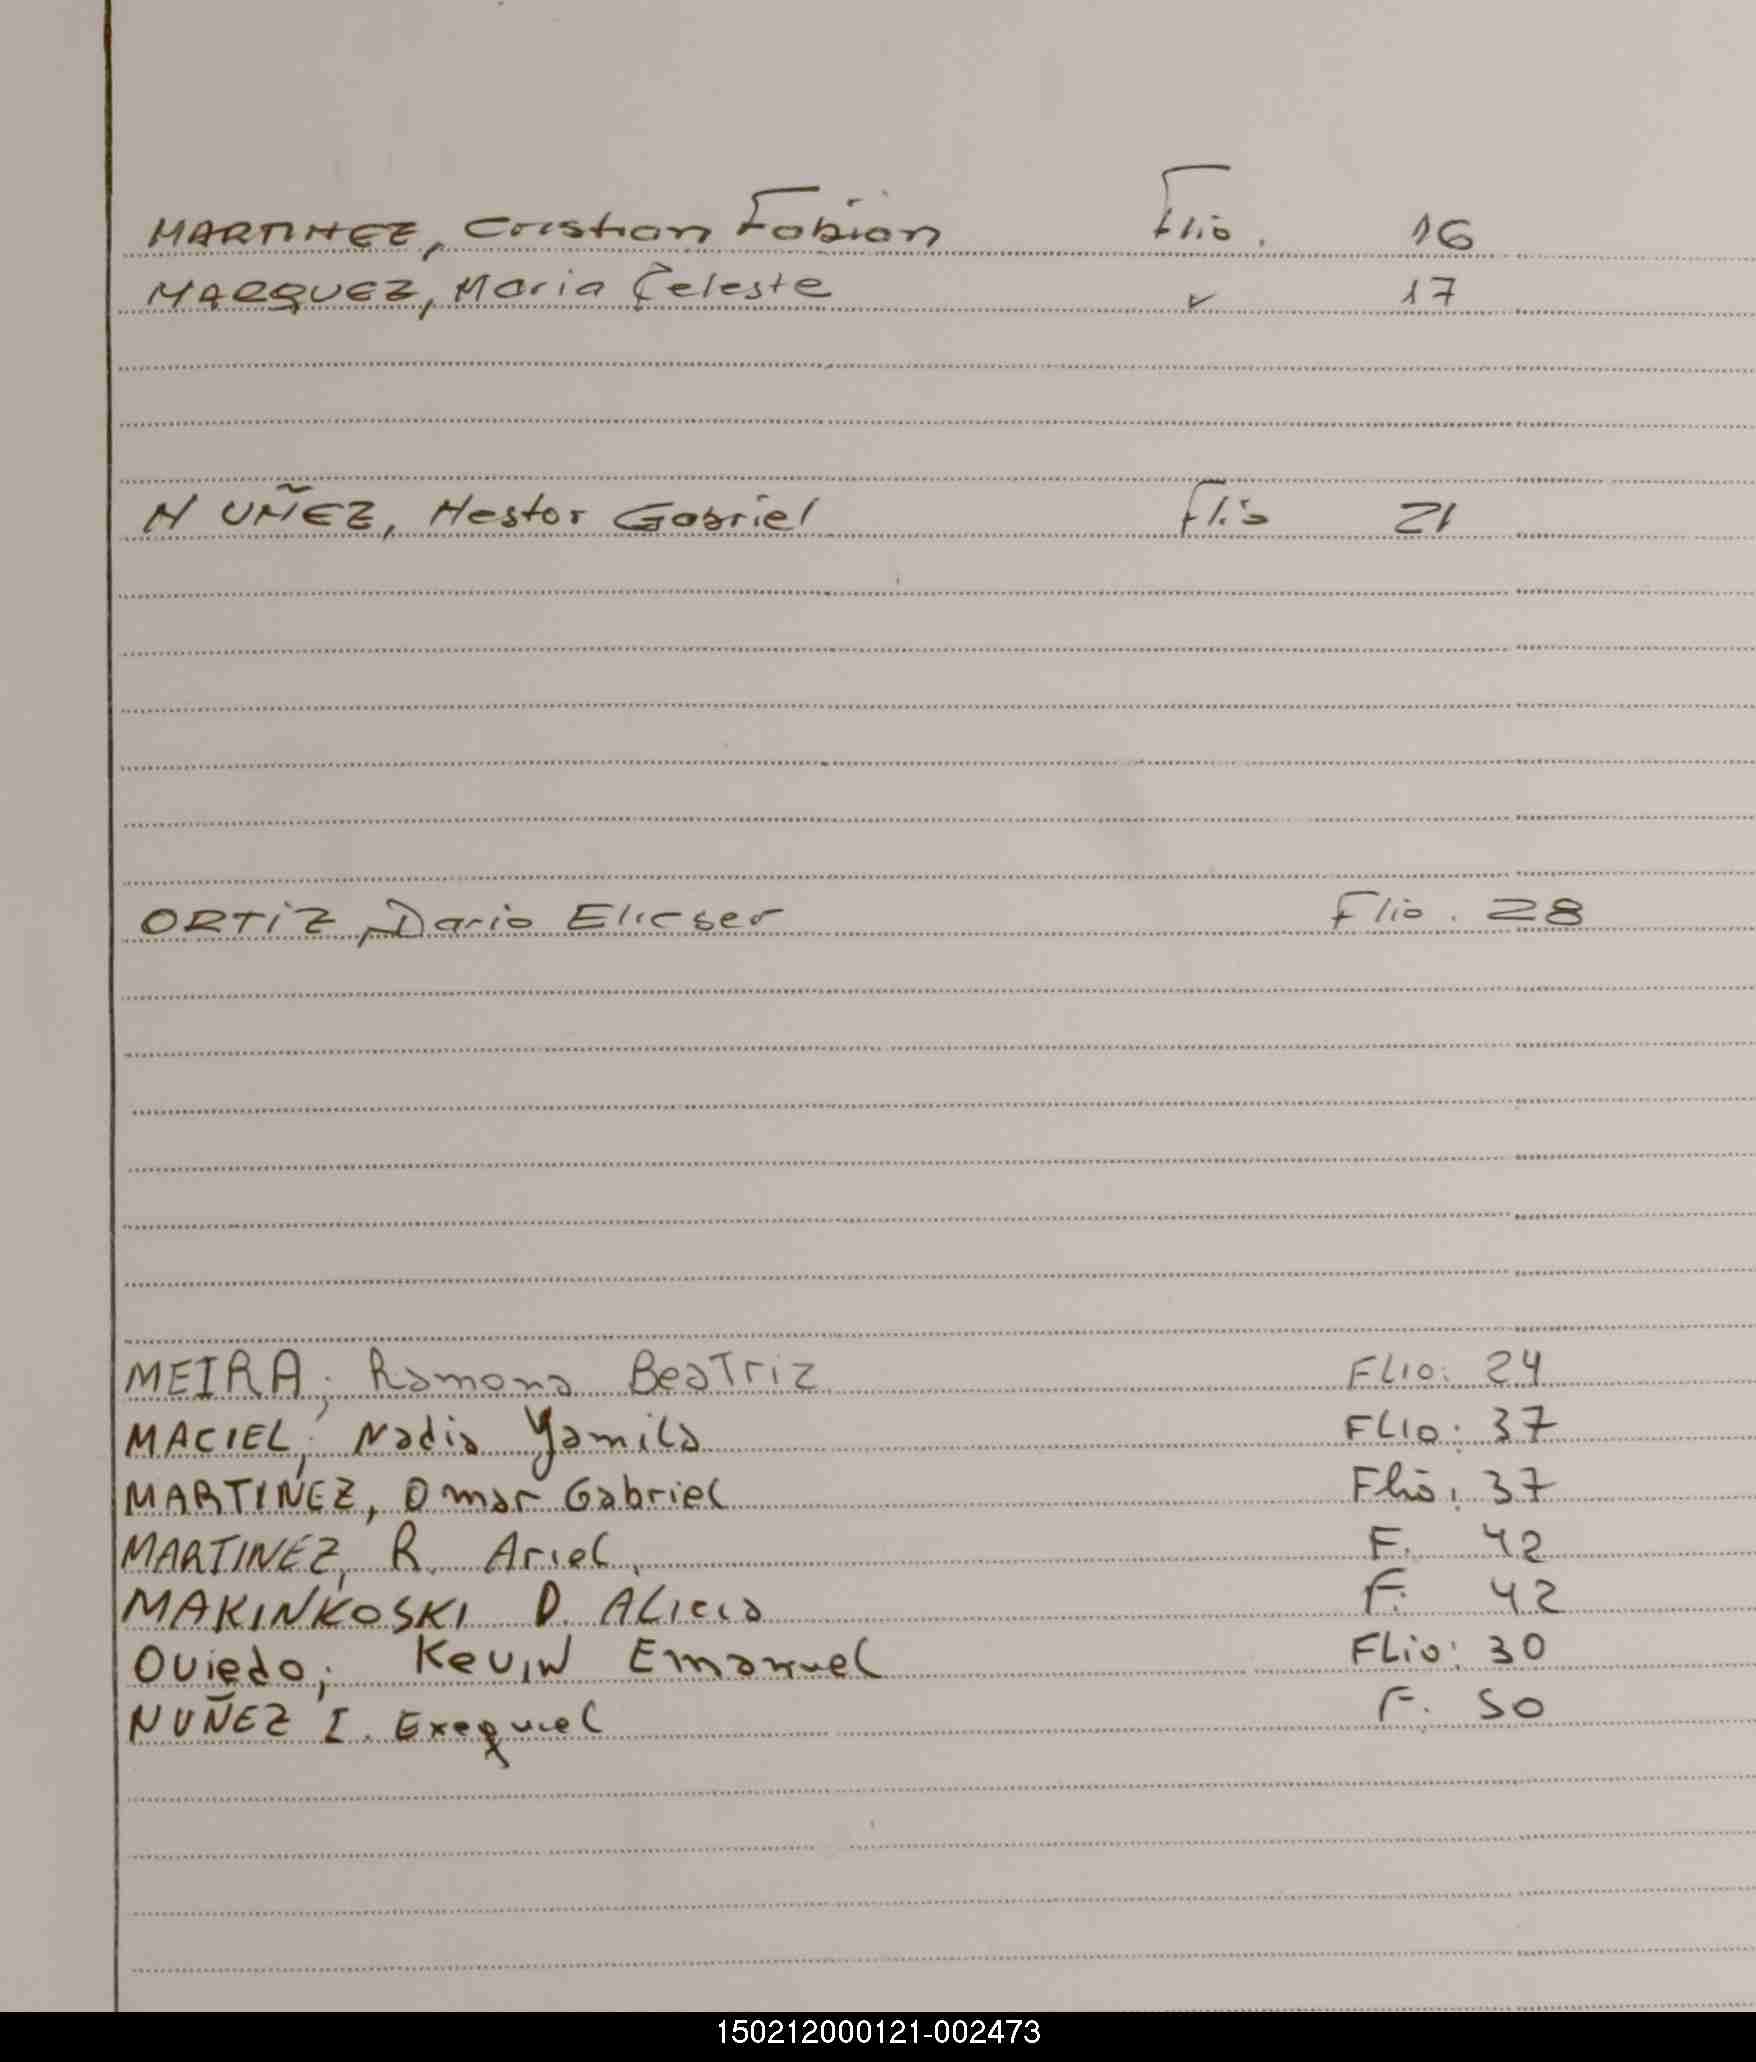 MARTINEZ, Cristian Fabian Flio. 16
MARQUEZ, Maria Celeste 17
NUÑEZ, Hestor Gabriel Flio 21
ORTiZ, Dario Elieser Flio. 28
MEIRA, Ramona BeaTriz FLIO: 24
MACIEL, Nadia Yamila FLIO: 37
MARTINEZ, Omar Gabriel Flio: 37
MARTINEZ, R. Ariel. F. 42
MAKINKOSKI D. ALicia F. 42
Oviedo, Kevin Emanuel FLio: 30
NUÑEZ I. Exequiel F. 50
150212000121-002473